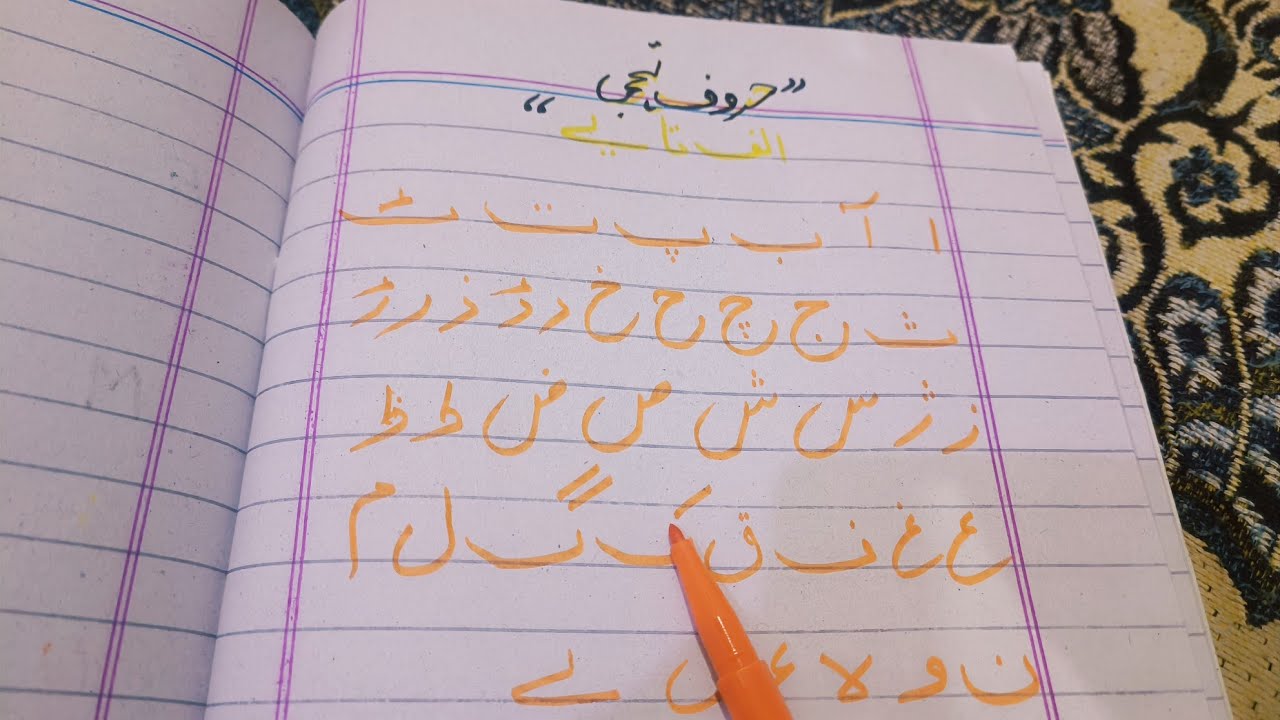 ”حروف تہجی
الف تا یے“
ا آ ب پ ت ٹ
ث ج چ ح خ د ڈ ذ ر ڑ
ز ژ س ش ص ض ط ظ
ع غ ف ق ک گ ل م
ن و لا ء ی ے